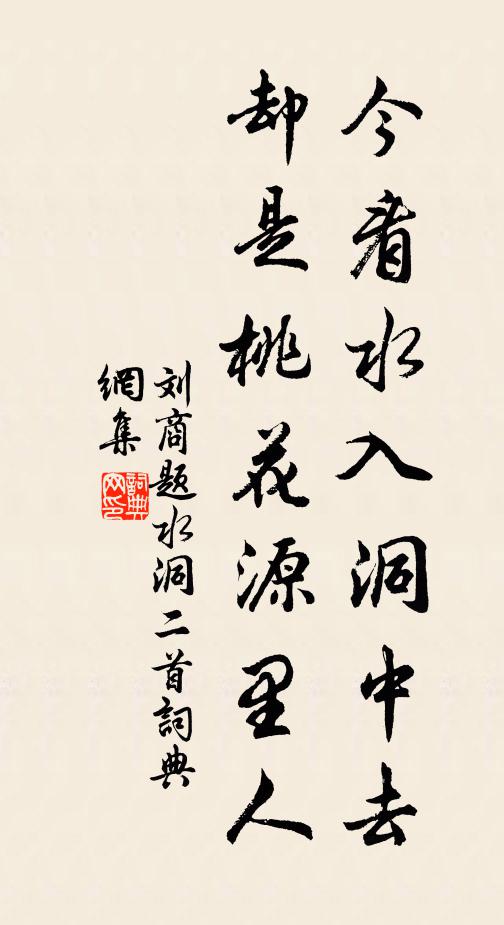 今看水入洞中去
却是桃花源里人
刘商题水洞二首詞典
網集
詞典
网印